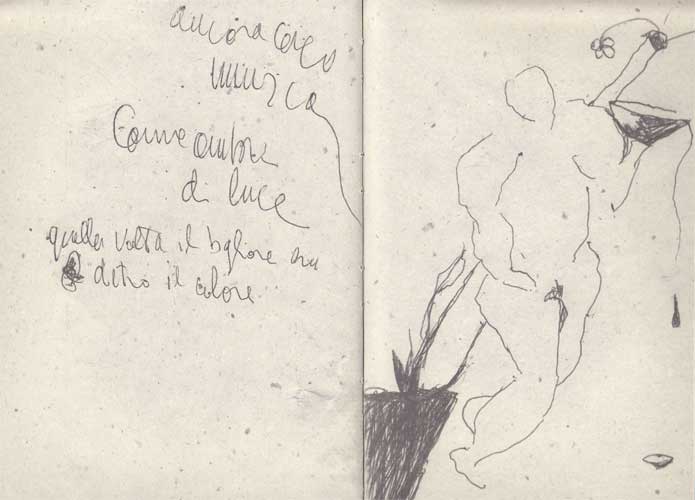 ancora cerco
musica
Come ombra
di luce
quella volta il bagliore era
dietro il colore